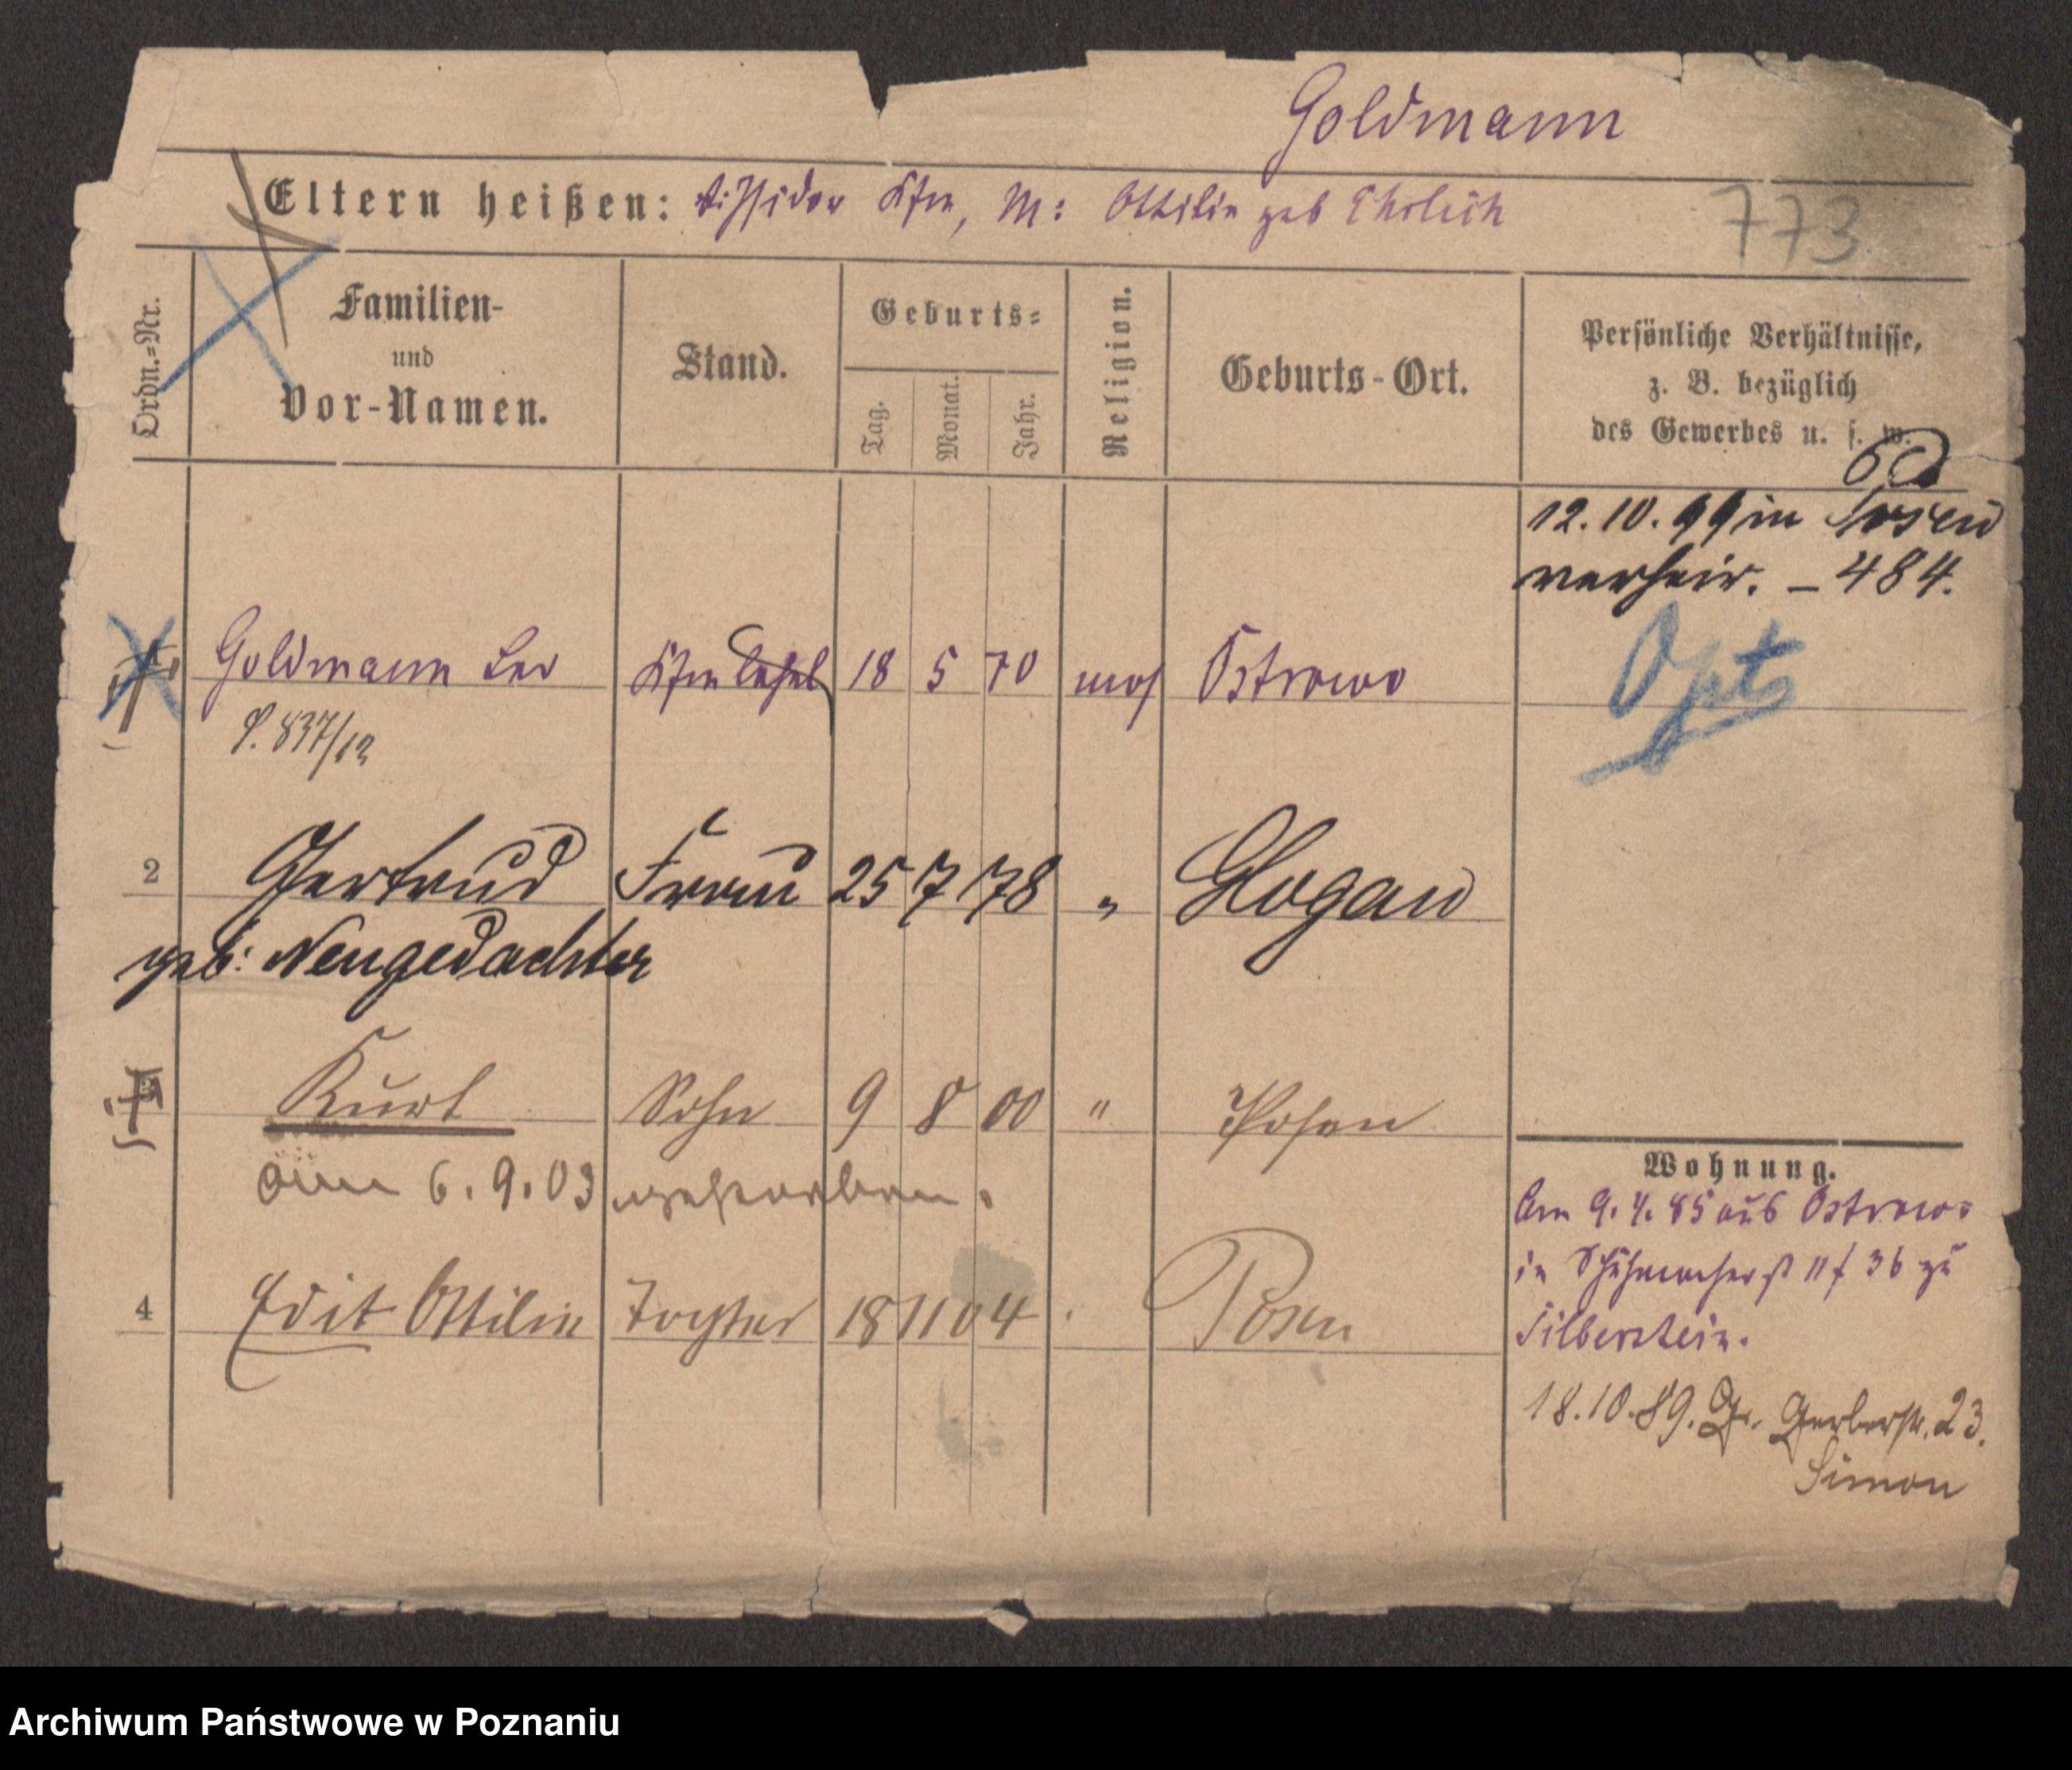 Goldmann
Eltern heißen: V: Isidor Kfm, M: Ottilie geb Ehrlich
773
Ordn.=Nr.
Familien- und Vor-Namen.
Stand.
Geburts=
Tag.
Monat.
Jahr.
Religion.
Geburts-Ort.
Persönliche Verhältnisse,
z. B. bezüglich
des Gewerbes u. s. w.
12.10.99 in Posen
verheir. – 484.
Goldmann Leo Kfm 18 5 70 mos Ostrowo
Opts
P. 837/12
2 Gertrud Frau 25 7 78 " Glogau
geb: Neugedachter
Kurt Sohn 9 8 00 " Posen
am 6.9.03 gestorben.
4 Edit Ottilie Tochter 18 11 04 Posen
Wohnung.
Am 9.4.85 aus Ostrowo
in Schuhmacherst 11 f 36 zu
Silberstein.
18.10.89. Gr. Gerberstr. 23.
Simon
Archiwum Państwowe w Poznaniu